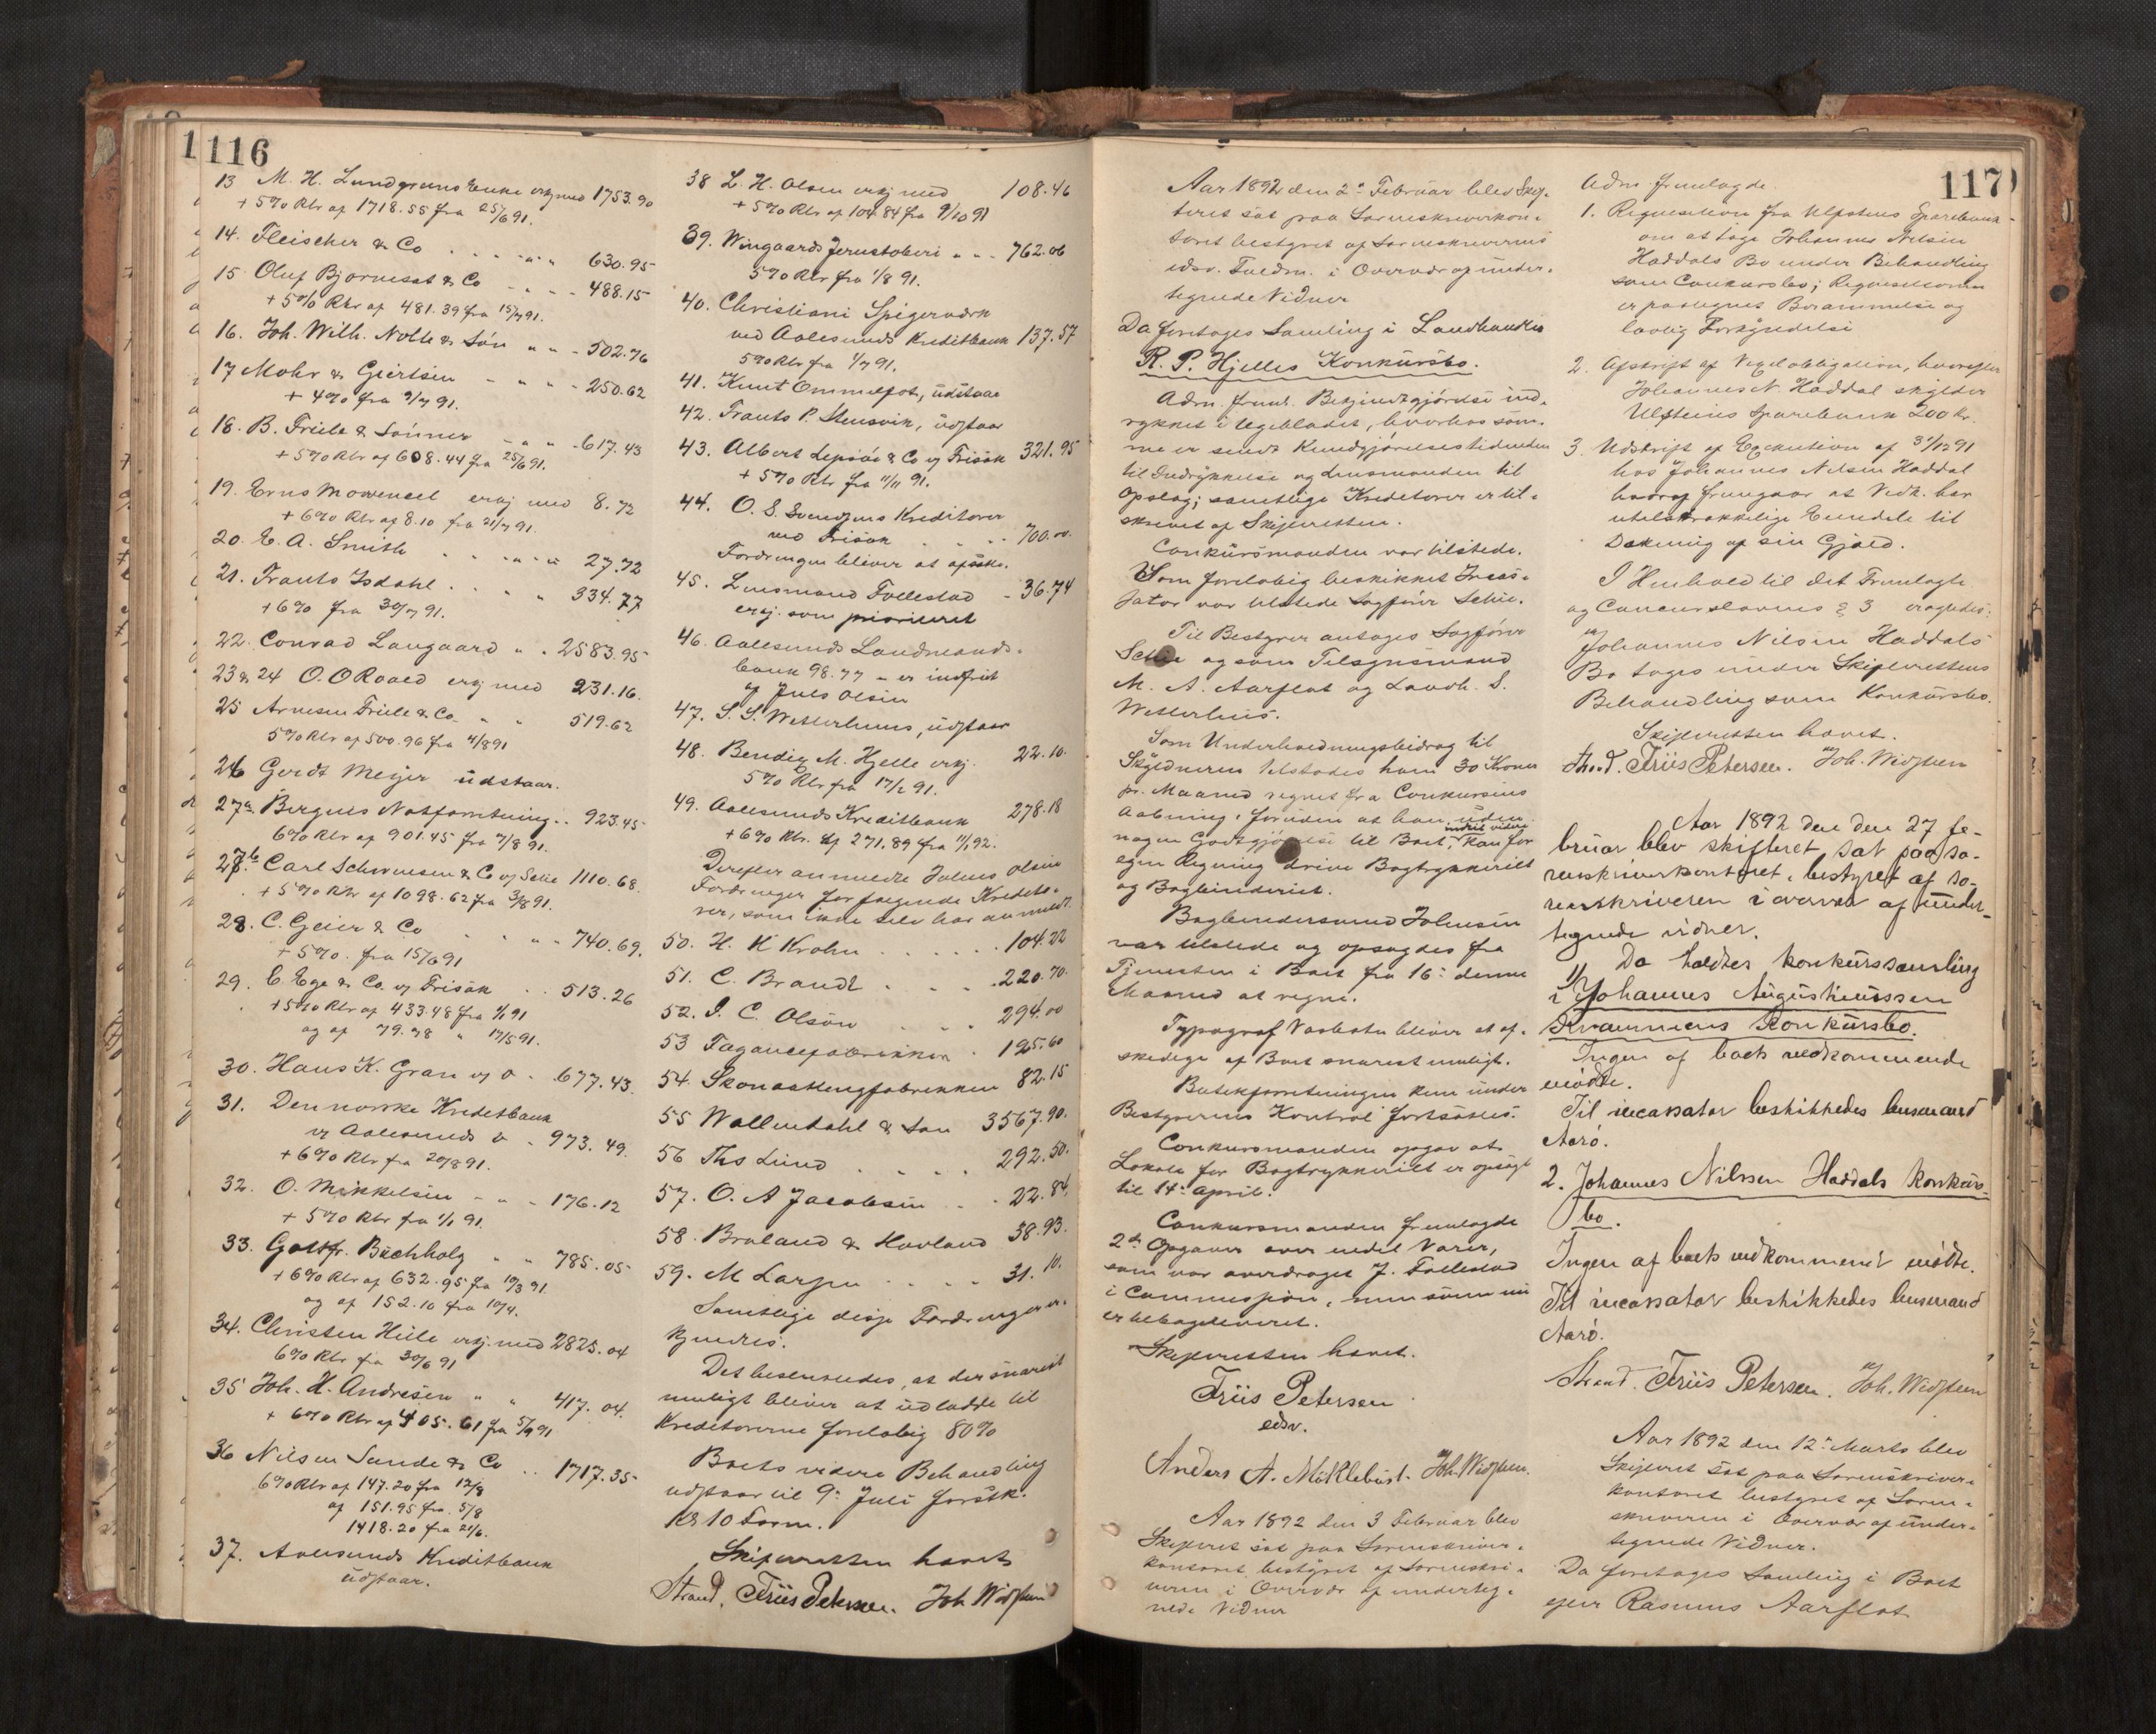 116
13 M. H. Lundgreens Enke erkj med 1753.90
+ 5% Rtr af 1718.55 fra 25/6 91.
14. Fleischer & Co . . . " " 630.95
15 Oluf Bjørneset & Co - " - - 488.15
+ 5% Rtr af 481.39 fra 15/7 91.
16. Joh. Wilh. Nolte & Søn " " - 502.76
17 Mohr & Giertsen - " - - 250.62
+ 4% fra 9/7 91.
18. B. Friele & Sønner - " - 617.43
+ 5% Rtr af 608.44 fra 25/6 91.
19. Erns Mowencel erkj med 8.72
+ 6% Rtr af 8.10 fra 21/7 91.
20. E. A. Smith . . " " " 27.72
21. Frants Isdahl . . . " " 334.77
+ 6% fra 30/7 91.
22. Conrad Langaard " . 2583.95
23 & 24 O. O Roald erkj med 231.16.
25 Arnesen Friele & Co. " " 519.62
5% Rtr af 500.96 fra 4/8 91
26 Gerdt Meyer udstaar.
27a. Bergens Notforretning . . 923.45
6% Rtr af 901.45 fra 7/8 91.
27b. Carl Schwensen & Co v/ Schie 1110.68.
+ 5% Rtr af 1098.62 fra 3/8 91.
28. C. Geier & Co . . " - 740.69.
+ 5%. fra 15/6 91
29. E. Ege & Co. v/ Frisak . . 513.26
+ 5% Rtr af 433.48 fra 1/1 91
og af 79.78 " 17/5 91.
30. Hans K. Gran v/ d - 677.43.
31. Den norske Kreditbank
v/ Aalesunds d - 973.49.
+ 6% Rtr fra 20/8 91.
32. O. Mikkelsen - " - 176.12
+ 5% Rtr fra 1/1 91.
33. Gottfr. Buchholz " " 785.05
+ 6% Rtr af 632.95 fra 10/3 91
og af 152.10 fra 10/4.
34. Christen Hiile erkj. med 2825.04
6% Rtr fra 30/6 91
35 Joh. H. Andresen " " 417.04.
+ 6% Rtr af 405.61 fra 5/9 91
36 Nilsen Sande & Co . . 1717.35
6% Rtr af 147.20 fra 12/8
af 151.95 fra 5/8
1418.20 fra 21/6.
37. Aalesunds Kreditbank
udstaar.
38 L. H. Olsen erkj med 108.46
+ 5% Rtr af 104.84 fra 9/10 91
39. Wingaards Jernstøberi " - - 762.06
5% Rtr fra 1/8 91.
40. Christiani Spigerværk
ved Aalesunds Kreditbank 137.57
5% Rtr fra 1/7 91.
41. Knut Ommelfot, udstaar
42. Frants P. Stensvik, udstaar
43. Albert Lepsøe & Co v/ Frisak 321.95
+ 5% Rtr fra 11/11 91.
44. O. S. Svendsens Kreditorer
ved Frisak . . . 700.00
Fordringen bliver at afvise.
45. Lensmand Follestad - 36.74
erkj. som prioriteret
46. Aalesunds Landmands-
bank 98.77 - er indfriet
af Juls Olsen
47. S. S. Wetterhuus, udstaar
48. Bendix M. Hjelle erkj. 22.10.
5% Rtr fra 17/2 91.
49. Aalesunds Kreditbank 278.18
+ 6% Rtr. af 271.89 fra 11/1 92.
Derefter anmeldte Julius Olsen
Fordringer for følgende Kredito-
rer, som ikke selv har anmeldt
50. H. K Krohn . . . . . 104.22
51. C. Brandt . . . . 220.70.
52. J. C. Olsen . . . 294.00
53 Fagancefabrikken . 125.60
54. Skotøitøifabrikken 82.15
55 Wallendahl & Søn 3567.90.
56 Ths Lund . . . . 292.50.
57. O. A Jacobsen . . 22.84.
58. Braland & Havland 38.93.
59. M Larsen . . . . 31.10.
Samtlige disse Fordringer er-
kjendtes.
Det besluttedes, at der snarest
muligt bliver at udlodde til
Kreditorerne foreløbig 80%
Boets videre Behandling
udstaar til 9de Juli førstk.
Kl 10 Form.
Skifteretten hævet
Strand. Friis Petersen. Joh Widsteen
117
Aar 1892 den 2den Februar blev Skif-
teret sat paa Sorenskriverkon-
toret bestyret af Sorenskriverens
edsv. Fuldm. i Overvær af under-
tegnede Vidner
Da foretoges Samling i Landhandler
R. P. Hjelles Konkursbo.
Adm. freml. Bekjendtgjørelse ind-
rykket i Ugebladet, hvorhos sam-
me er sendt Kundgjørelsestidenden
til Indrykkelse og Lensmanden til
Opslag; samtlige Kreditorer er til-
skrevet af Skifteretten.
Conkursmanden var tilstede.
Som foreløbig beskikket Incas-
sator var tilstede Sagfører Schie.
Til Bestyrer antages Sagfører
Schie og som Tilsynsmænd
M. A. Aarflot og Landh. S.
Wetterhus.
Som Underholdningsbidrag til
Skyldneren tilstodes ham 30 Kroner
pr. Maaned regnet fra Conkursens
Aabning, foruden at han uden
nogen Godtgjørelse til Boet, indtil videre kan for
egen Regning drive Bogtrykkeriet
og Bogbinderiet.
Bogbindersvend Johnsen
var tilstede og opsagdes fra
Tjenesten i Boet fra 16de denne
Maaned at regne.
Typograf Vasbotn bliver at af-
skedige af Boet snarest muligt.
Butikforretningen kan under
Bestyrerens Kontrol fortsættes.
Conkursmanden opgav at
Lokale for Bogtrykkeriet er opsagt
til 14de April.
Conkursmanden fremlagde
2de Opgaver over endel Varer,
som var overdraget J. Follestad
i Commission, men som nu
er tilbageleveret.
Skifteretten hævet.
Friis Petersen
edsv.
Anders A. Møklebust. Joh. Widsteen.
Aar 1892 den 3 Februar blev
Skifteret sat paa Sorenskriver-
kontoret bestyret af Sorenskri-
veren i Overvær af underteg-
nede Vidner
Adm fremlagde.
1. Reqvisition fra Ulfstens Sparebank
om at tage Johannes Nilsen
Haddals Bo under Behandling
som Conkursbo; Reqvisitionen
er paategnet Berammelse og
lovlig Forkyndelse
2. Afskrift af Vexelobligation, hvorefter
Johannes N. Haddal skylder
Ulfstens Sparebank 200 Kr.
3. Udskrift af Execution af 31/12 91
hos Johannes Nilsen Haddal
hvoraf fremgaar at Vedk. har
utilstrækkelige Eiendele til
Dækning af sin Gjæld.
I Henhold til det Fremlagte
og Concurslovens § 3 eragtedes:
Johannes Nilsen Haddals
Bo tages under Skifterettens
Behandling som Konkursbo.
Skifteretten hævet.
Strand. Friis Petersen. Joh. Widsteen
Aar 1892 den den 27 fe-
bruar blev skifteret sat paa so-
renskriverkontoret, bestyret af so-
renskriveren i overvær af under-
tegnede vidner.
Da holdtes konkurssamling
1) i Johannes Augustinussen
Kvammens Konkursbo.
Ingen af boets vedkommende
mødte.
Til incassator beskikkedes lensmand
Aarø.
2. Johannes Nilssen Haddals konkurs-
bo.
Ingen af boets vedkommende mødte.
Til incassator beskikkedes lensmand
Aarø.
Strand. Friis Petersen. Joh. Widsteen
Aar 1892 den 12te Marts blev
Skifteret sat paa Sorenskriver-
kontoret bestyret af Soren-
skriveren i Overvær af under-
tegnede Vidner.
Da foretoges Samling i Boet
efter Rasmus Aarflot